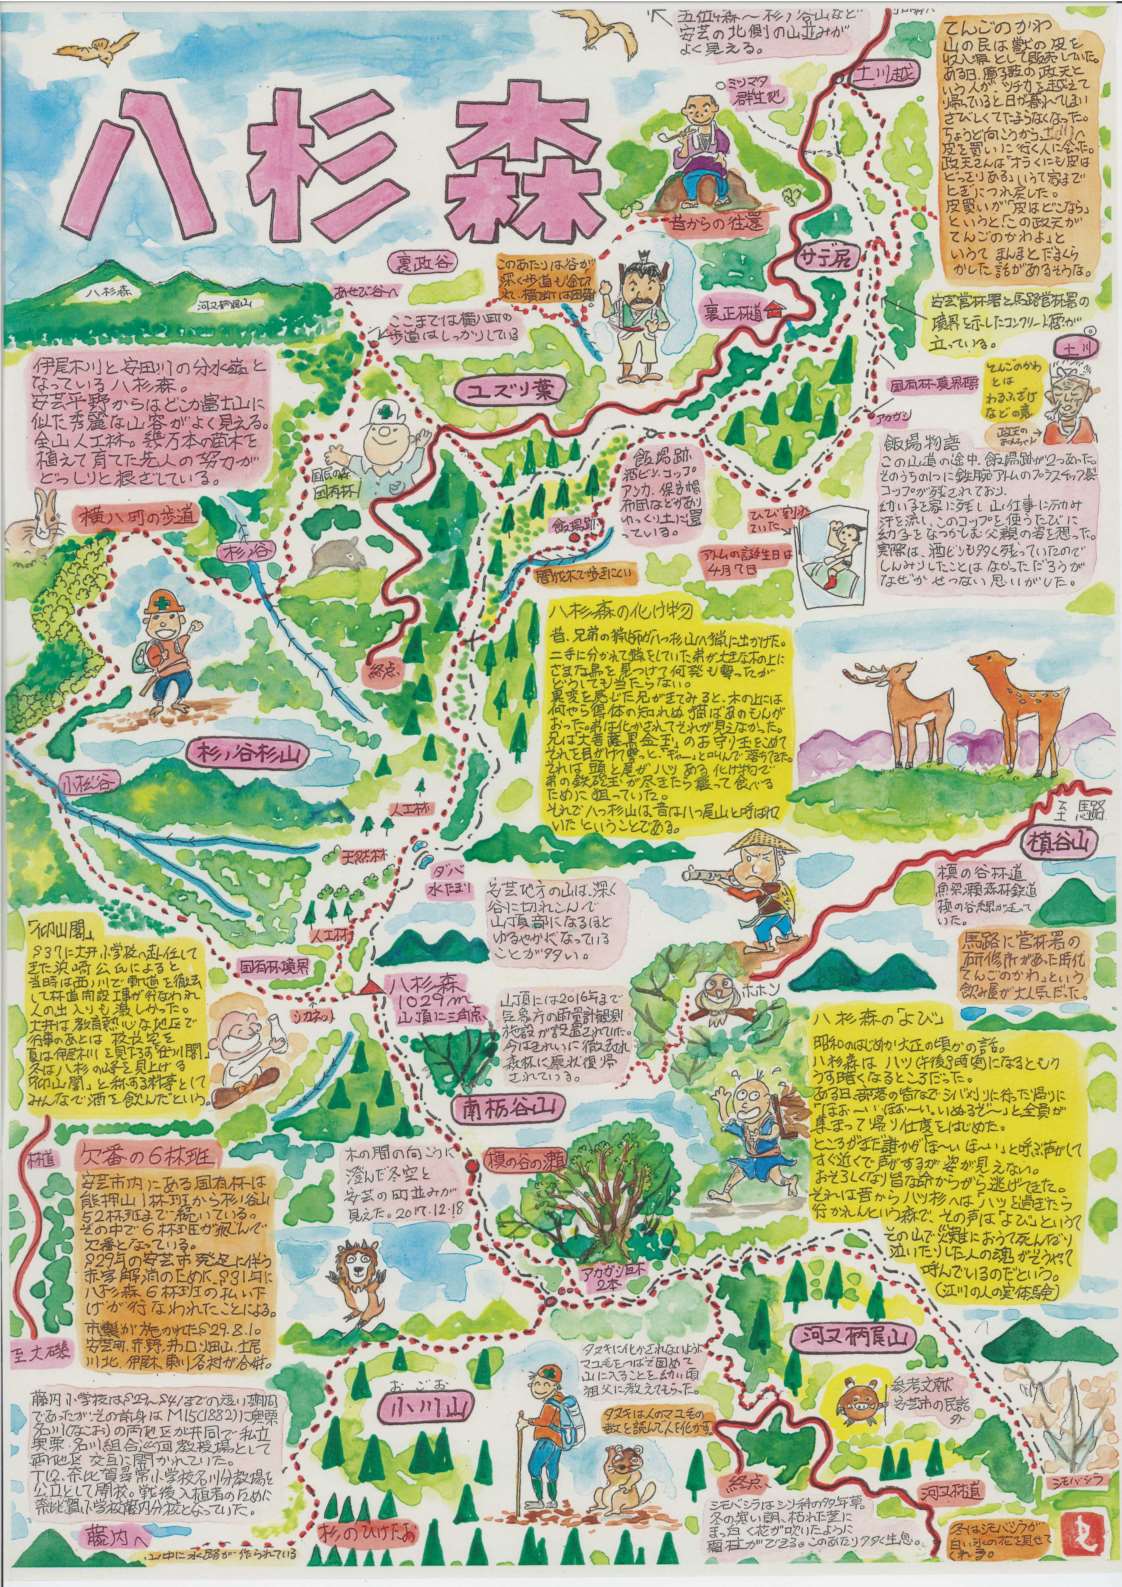 五位ヶ森〜杉ノ谷山など
安芸の北側の山並みが
よく見える。
土川越
てんごのかわ
山の民は獣の皮を
収入源として販売していた。
ある日、馬路の政天と
いう人が
帰っていると日が暮れてしまい
さびしくてたまらなくなった。
ちょうど向こうから
皮を買いに行く人に会った。
政天さんは「オラくにも皮は
どっさりある」いうて家まで
とぎにつれ戻した。
皮買いが「皮はどこなら」
というと「この政天が
てんごのかわよ」と
いうて まんまとだまくら
かした話があるそうな。
ミツマタ
群生地
八杉森
昔からの往還
サデ尾
裏政谷
あせび谷へ
このあたりは谷が
深く歩道も
ここまでは横八町の
歩道はしっかりしている
裏正林道
安芸営林署と馬路営林署の
境界を示したコンクリート
立っている。
土川
てんごのかわ
とは
わるふざけ
などの意
国有林境界
アカガシ
八杉森
河又柄尾山
伊尾木川と安田川の分水嶺と
なっている八杉森。
安芸平野からはどこか富士山に
似た秀麗な山容がよく見える。
全山人工林。幾万本の苗木を
植えて育てた先人の努力が
どっしりと根ざしている。
ユズリ葉
国民の森
国有林
横八町の歩道
杉ノ谷
飯場跡
酒ビン、コップ
アンカ、保安帽
布団などがあり
ゆっくり土に還
っている。
飯場跡
ひび割れ
ていた
アトムの誕生日は
4月7日
飯場物語
この山道の途中、飯場跡が2つあった。
そのうちの1つに鉄腕アトムのプラスチック製
コップが残されており、
幼い子を家に残し山仕事に励み
汗を流し、このコップを使うたびに
幼子をなつかしむ父親の姿を想った。
実際は、酒ビンも多く残っていたので
しんみりしたことは なかっただろうが
なぜか せつない思いがした。
八杉森の化け物
昔、兄弟の猟師が八杉山へ猟に出かけた。
二手に分かれて猟をしていた弟が大きな木の上に
さまた鳥を見つけて何発も撃ったが
どうしても当たらない。
異変を感じた兄がきてみると、木の上には
何やら得体の知れぬ猫ばあのもんが
おった。弟は化かされてそれが見えなかった。
兄は「大菩薩黒金玉」のお守り玉をこめて
それを目がけて撃つと「ギャー」と叫んで落ちてきた。
それは 頭と尾が八ツある化け物で
弟の鉄砲玉が尽きたら襲って食べる
ために狙っていた。
それで八ツ杉山は昔は八ツ尾山と呼ばれて
いたということである。
終点
杉ノ谷杉山
小松谷
人工林
天然林
ダバ
水たまり
人工林
至 馬路
槙谷山
槙の谷林道
魚梁瀬森林鉄道
槙の谷線が走って
いた。
馬路に営林署の
研修所があった時代
「てんごのかわ」という
飲み屋が大人気だった。
安芸地方の山は、深く
谷に切れこんで
山頂部になるほど
ゆるやかになっている
ことが多い。
「仰山閣」
S37に土井小学校へ赴任して
きた浜崎公氏によると
当時は西ノ川で軌道を撤去
して林道開設工事が行なわれ
人の出入りも激しかった。
土井は教育熱心な地区で
行事のあとは 校長室を
夏は伊尾木川を見下ろす「仙川閣」
冬は八杉の峰を見上げる
「仰山閣」と称する料亭として
みんなで酒を飲んだという。
国有林境界
シカネット
八杉森
1029m
山頂に三角点
山頂には2016年まで
気象庁の雨量計観測
施設が設置されていた。
今はきれいに撤去され
森林に原状復帰
されている。
ホホン
八杉森の「よび」
昭和のはじめか大正の頃かの話。
八杉森は 八ツ（午後3時頃）になるともう
うす暗くなるところだった。
ある日、部落の皆なでシバ刈りに行った帰りに
「ほお〜い ほお〜い。いぬるぞ〜」と全員が
集まって帰り仕度をはじめた。
ところがまだ誰かが「ほ〜い ほ〜い」と呼ぶ声がして
すぐ近くで声がするが 姿が見えない。
おそろしくなり皆な命からがら逃げてきた。
それいは昔から八ツ杉へは「八ツを過ぎたら
行かれん」という森で、その声は「よび」というて
その山で災難におうて死んだり
泣いたりした人の魂がそうやって
呼んでいるのだという。
（江川の人の実体験）
南栃谷山
林道
至大磯
欠番の6林班
安芸市内にある国有林は
能押山1林班から杉谷山
52林班まで 続いている。
その中で6林班が飛んで
欠番となっている。
S29年の安芸市発足に伴う
赤字解消のために、S31年に
八杉森6林班の払い下
げが行なわれたことによる。
市制が施かれたS29.8.1。
安芸町、赤野、井ノ口、畑山、土居
川北、伊尾木、東川各村が合併。
木の間の向こうに
澄んだ冬空と
安芸の町並みが
見えた。2017.12.18
槙の谷の瀬
アカガシ巨木
2本
河又柄尾山
タヌキに化かされないよう
マユをつばで固めて
山に入ることを幼い頃
祖父に教えてもらった。
タヌキは人のマユモの
数を読んで人を化かす。
参考文献
安芸市の民話
外
おごお
小川山
藤内小学校はS29〜S41までの短い期間
であったが、その前身はM15（1882）に奥栗
名川（なごお）の両地区が共同で私立
奥栗・名川組合巡回教授場として
両地区交互に開かれていた。
T12、奈比賀尋常小学校名川分教場を
公立として開校。戦後入植者のために
奈比賀小学校藤内分校となっていた。
藤内へ
山中に水路が作られている
杉のひげたあ
終点
シモバシラはシソ科の多年草。
冬の寒い朝、枯れた茎に
まっ白く花が咲いたように
霜柱ができる。このあたり多く生息。
河又林道
シモバシラ
冬はシモバシラが
白い氷の花を見せて
くれる。